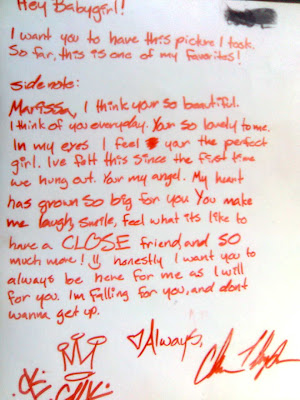 Hey Babygirl!
I want you to have this picture I took.
So far, this is one of my favorites!
sidenote:
Marissa, I think your so beautiful.
I think of you everyday. Your so lovely to me.
In my eyes I feel yar the perfect
girl. Ive felt this since the first time
we hung out. Your my angel. My heart
has grown so big for you You make
me laugh, smile, feel what its like to
have a CLOSE friend, and SO
much more! honestly I want you to
always be here for me as I will
for you. Im falling for you, and dont
wanna get up.
Always,